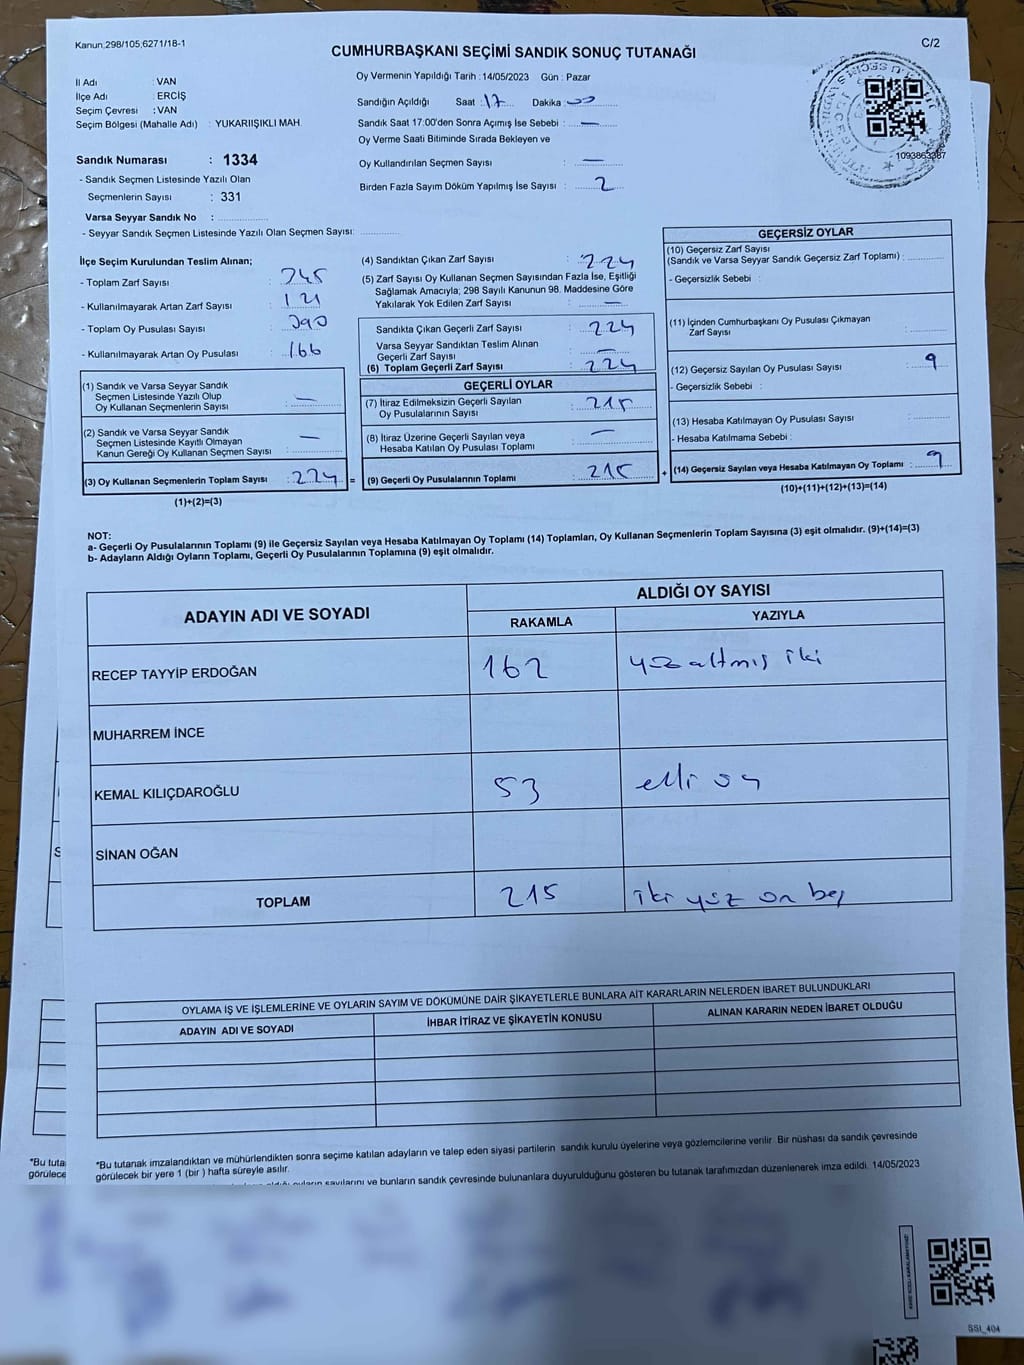 Kanun:298/105,6271/18-1
C/2
CUMHURBAŞKANI SEÇİMİ SANDIK SONUÇ TUTANAĞI
İl Adı : VAN
İlçe Adı : ERCİŞ
Seçim Çevresi : VAN
Seçim Bölgesi (Mahalle Adı) : YUKARIIŞIKLI MAH.
Sandık Numarası : 1334
- Sandık Seçmen Listesinde Yazılı Olan
Seçmenlerin Sayısı : 331
Varsa Seyyar Sandık No :
- Seyyar Sandık Seçmen Listesinde Yazılı Olan Seçmen Sayısı:
Oy Vermenin Yapıldığı Tarih : 14/05/2023 Gün : Pazar
Sandığın Açıldığı Saat : 17 Dakika : 00
Sandık Saat 17:00'den Sonra Açımış İse Sebebi : —
Oy Verme Saati Bitiminde Sırada Bekleyen ve
Oy Kullandırılan Seçmen Sayısı : —
Birden Fazla Sayım Döküm Yapılmış İse Sayısı : 2
1093863387
İlçe Seçim Kurulundan Teslim Alınan;
- Toplam Zarf Sayısı : 345
- Kullanılmayarak Artan Zarf Sayısı : 121
- Toplam Oy Pusulası Sayısı : 390
- Kullanılmayarak Artan Oy Pusulası : 166
(1) Sandık ve Varsa Seyyar Sandık
Seçmen Listesinde Yazılı Olup
Oy Kullanan Seçmenlerin Sayısı : —
(2) Sandık ve Varsa Seyyar Sandık
Seçmen Listesinde Kayıtlı Olmayan
Kanun Gereği Oy Kullanan Seçmen Sayısı : —
(3) Oy Kullanan Seçmenlerin Toplam Sayısı : 224 =
(1)+(2)=(3)
(4) Sandıktan Çıkan Zarf Sayısı : 224
(5) Zarf Sayısı Oy Kullanan Seçmen Sayısından Fazla İse, Eşitliği
Sağlamak Amacıyla; 298 Sayılı Kanunun 98. Maddesine Göre
Yakılarak Yok Edilen Zarf Sayısı : —
Sandıkta Çıkan Geçerli Zarf Sayısı : 224
Varsa Seyyar Sandıktan Teslim Alınan
Geçerli Zarf Sayısı : —
(6) Toplam Geçerli Zarf Sayısı : 224
GEÇERLİ OYLAR
(7) İtiraz Edilmeksizin Geçerli Sayılan
Oy Pusulalarının Sayısı : 215
(8) İtiraz Üzerine Geçerli Sayılan veya
Hesaba Katılan Oy Pusulası Toplamı : —
(9) Geçerli Oy Pusulalarının Toplamı : 215 +
GEÇERSİZ OYLAR
(10) Geçersiz Zarf Sayısı
(Sandık ve Varsa Seyyar Sandık Geçersiz Zarf Toplamı) :
- Geçersizlik Sebebi :
(11) İçinden Cumhurbaşkanı Oy Pusulası Çıkmayan
Zarf Sayısı :
(12) Geçersiz Sayılan Oy Pusulası Sayısı : 9
- Geçersizlik Sebebi :
(13) Hesaba Katılmayan Oy Pusulası Sayısı :
- Hesaba Katılmama Sebebi :
(14) Geçersiz Sayılan veya Hesaba Katılmayan Oy Toplamı : 9
(10)+(11)+(12)+(13)=(14)
NOT:
a- Geçerli Oy Pusulalarının Toplamı (9) ile Geçersiz Sayılan veya Hesaba Katılmayan Oy Toplamı (14) Toplamları, Oy Kullanan Seçmenlerin Toplam Sayısına (3) eşit olmalıdır. (9)+(14)=(3)
b- Adayların Aldığı Oyların Toplamı, Geçerli Oy Pusulalarının Toplamına (9) eşit olmalıdır.
ADAYIN ADI VE SOYADI ALDIĞI OY SAYISI
RAKAMLA YAZIYLA
RECEP TAYYİP ERDOĞAN 162 yüz altmış iki
MUHARREM İNCE
KEMAL KILIÇDAROĞLU 53 elli
SİNAN OĞAN
TOPLAM 215 iki yüz on beş
OYLAMA İŞ VE İŞLEMLERİNE VE OYLARIN SAYIM VE DÖKÜMÜNE DAİR ŞİKAYETLERLE BUNLARA AİT KARARLARIN NELERDEN İBARET BULUNDUKLARI
ADAYIN ADI VE SOYADI İHBAR İTİRAZ VE ŞİKAYETİN KONUSU ALINAN KARARIN NEDEN İBARET OLDUĞU
*Bu tutanak imzalandıktan ve mühürlendikten sonra seçime katılan adayların ve talep eden siyasi partilerin sandık kurulu üyelerine veya gözlemcilerine verilir. Bir nüshası da sandık çevresinde
görülecek bir yere 1 (bir ) hafta süreyle asılır.
sayılarını ve bunların sandık çevresinde bulunanlara duyurulduğunu gösteren bu tutanak tarafımızdan düzenlenerek imza edildi. 14/05/2023
*Bu tuta
görülece
SSI_404